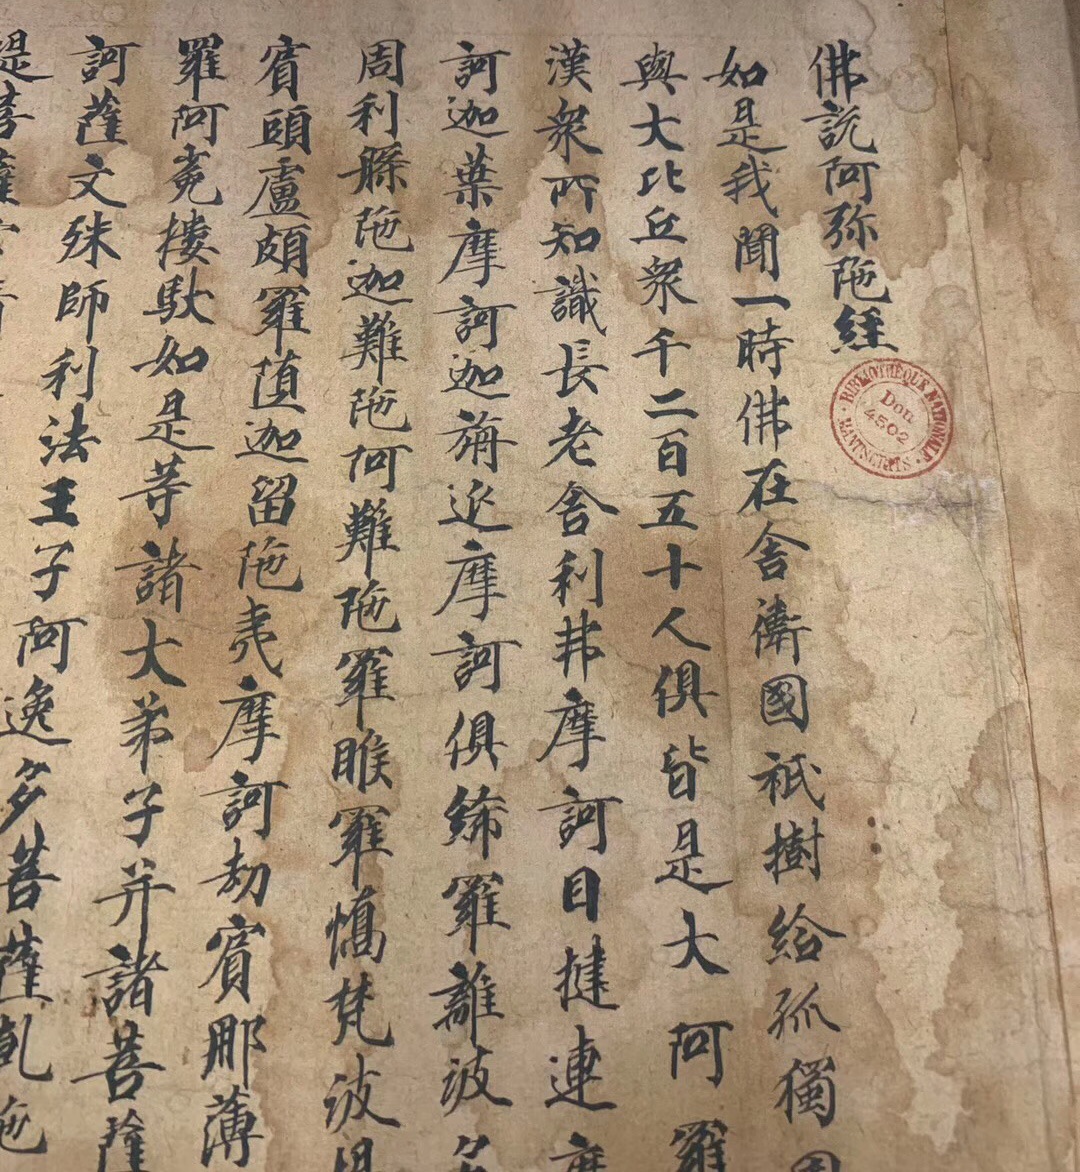 佛說阿弥陁經
如是我聞一時佛在舍衛國祇樹給孤獨
與大比丘衆千二百五十人俱皆是大阿羅
漢衆所知識長老舍利弗摩訶目揵連摩
訶迦葉摩訶迦旃延摩訶俱絺羅離波多
周利縣陁迦難陁阿難陁羅睺羅憍梵波提
賓頭盧頗羅墮迦留陁夷摩訶劫賓那薄
羅阿㝹樓馱如是等諸大弟子并諸菩薩
訶薩文殊師利法王子阿逸多菩薩乹陁
提菩薩
BIBLIOTHÈQUE NATIONALE
Don
4502
MANUSCRITS